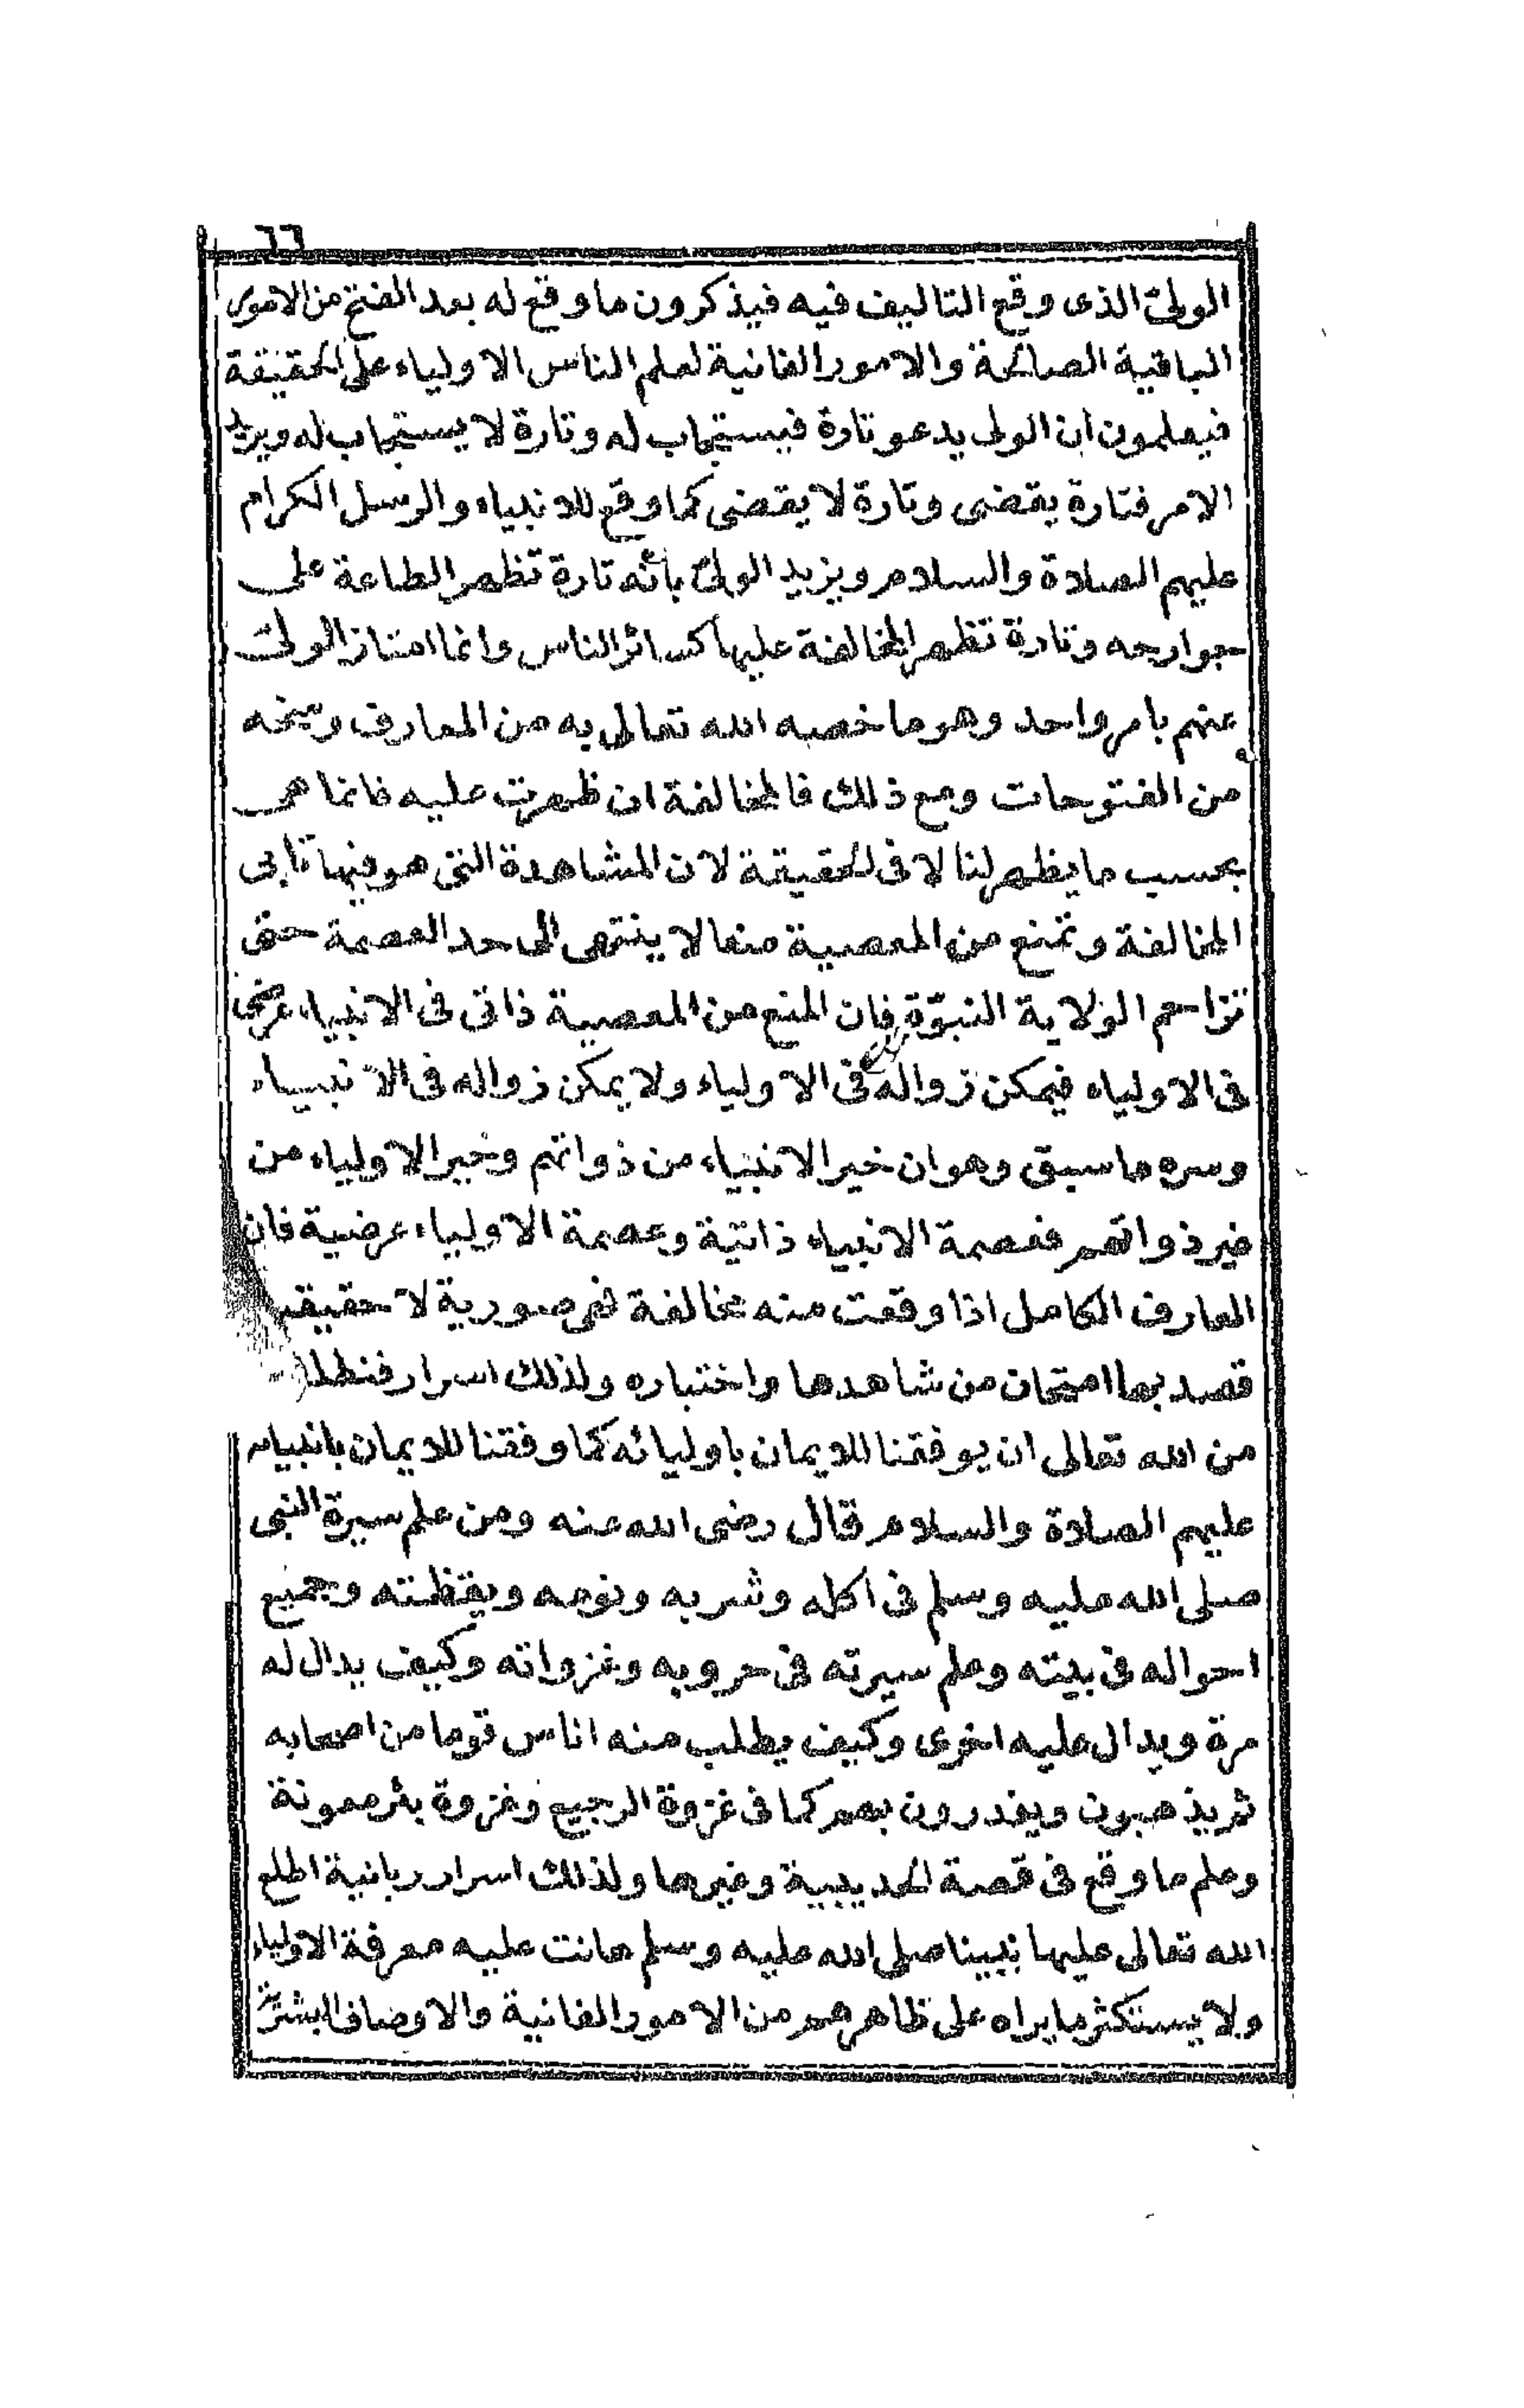 ٦٦
الولىّ الذى وقع التاليف فيه فيذكرون ما وقع له بعد الفتح من الامور
الباقية الصالحة والامور الفانية لعلم الناس الاولياء على الحقيقة
فيعلمون ان الولى يدعو تارة فيستجاب له وتارة لا يستجاب له ويريد
الامر فتارة يقضى وتارة لا يقضى كما وقع للانبياء والرسل الكرام
عليهم الصلاة والسلام ويزيد الولىّ بانّه تارة تظهر الطاعة على
جوارحه وتارة تظهر المخالفة عليها كسائر الناس وانما امتاز الولىّ
عنهم بامر واحد وهو ما خصه الله تعالى به من المعارف ومنحه
من الفتوحات ومع ذلك فالمخالفة ان ظهرت عليه فانما هى
بحسب ما يظهر لنا لا فى الحقيقة لان المشاهدة التى هو فيها تابى
المخالفة وتمنع من المعصية منعا لا ينتهى الى حد العصمة حتى
تزاحم الولاية النبوّة فان المنع من المعصية ذاتى فى الانبياء عرضى
فى الاولياء فيمكن زواله فى الاولياء ولا يمكن زواله فى الانبياء
وسره ما سبق وهو ان خير الانبياء من ذواتهم وخير الاولياء من
غير ذواتهم فعصمة الانبياء ذاتية وعصمة الاولياء عرضية فان
العارف الكامل اذا وقعت منه مخالفة فهى صورية لا حقيقية
قصد بها امتحان من شاهدها واختباره ولذلك اسرار فنطلب
من الله تعالى ان يوفقنا للايمان باوليائه كما وفقنا للايمان بانبيائه
عليهم الصلاة والسلام قال رضى الله عنه ومن علم سيرة النبى
صلى الله عليه وسلم فى اكله وشربه ونومه ويقظته وجميع
احواله فى بيته وعلم سيرته فى حروبه وغزواته وكيف يدال له
مرة ويدال عليه اخرى وكيف يطلب منه اناس قوما من اصحابه
ثم يذهبون ويغدرون بهم كما فى غزوة الرجيع وغزوة بئر معونة
وعلم ما وقع فى قصة الحديبية وغيرها ولذلك اسرار ربانية اطلع
الله تعالى عليها نبينا صلى الله عليه وسلم هانت عليه معرفة الاولياء
ولا يستكثر ما يراه على ظاهرهم من الامور الفانية والاوصاف البشرية